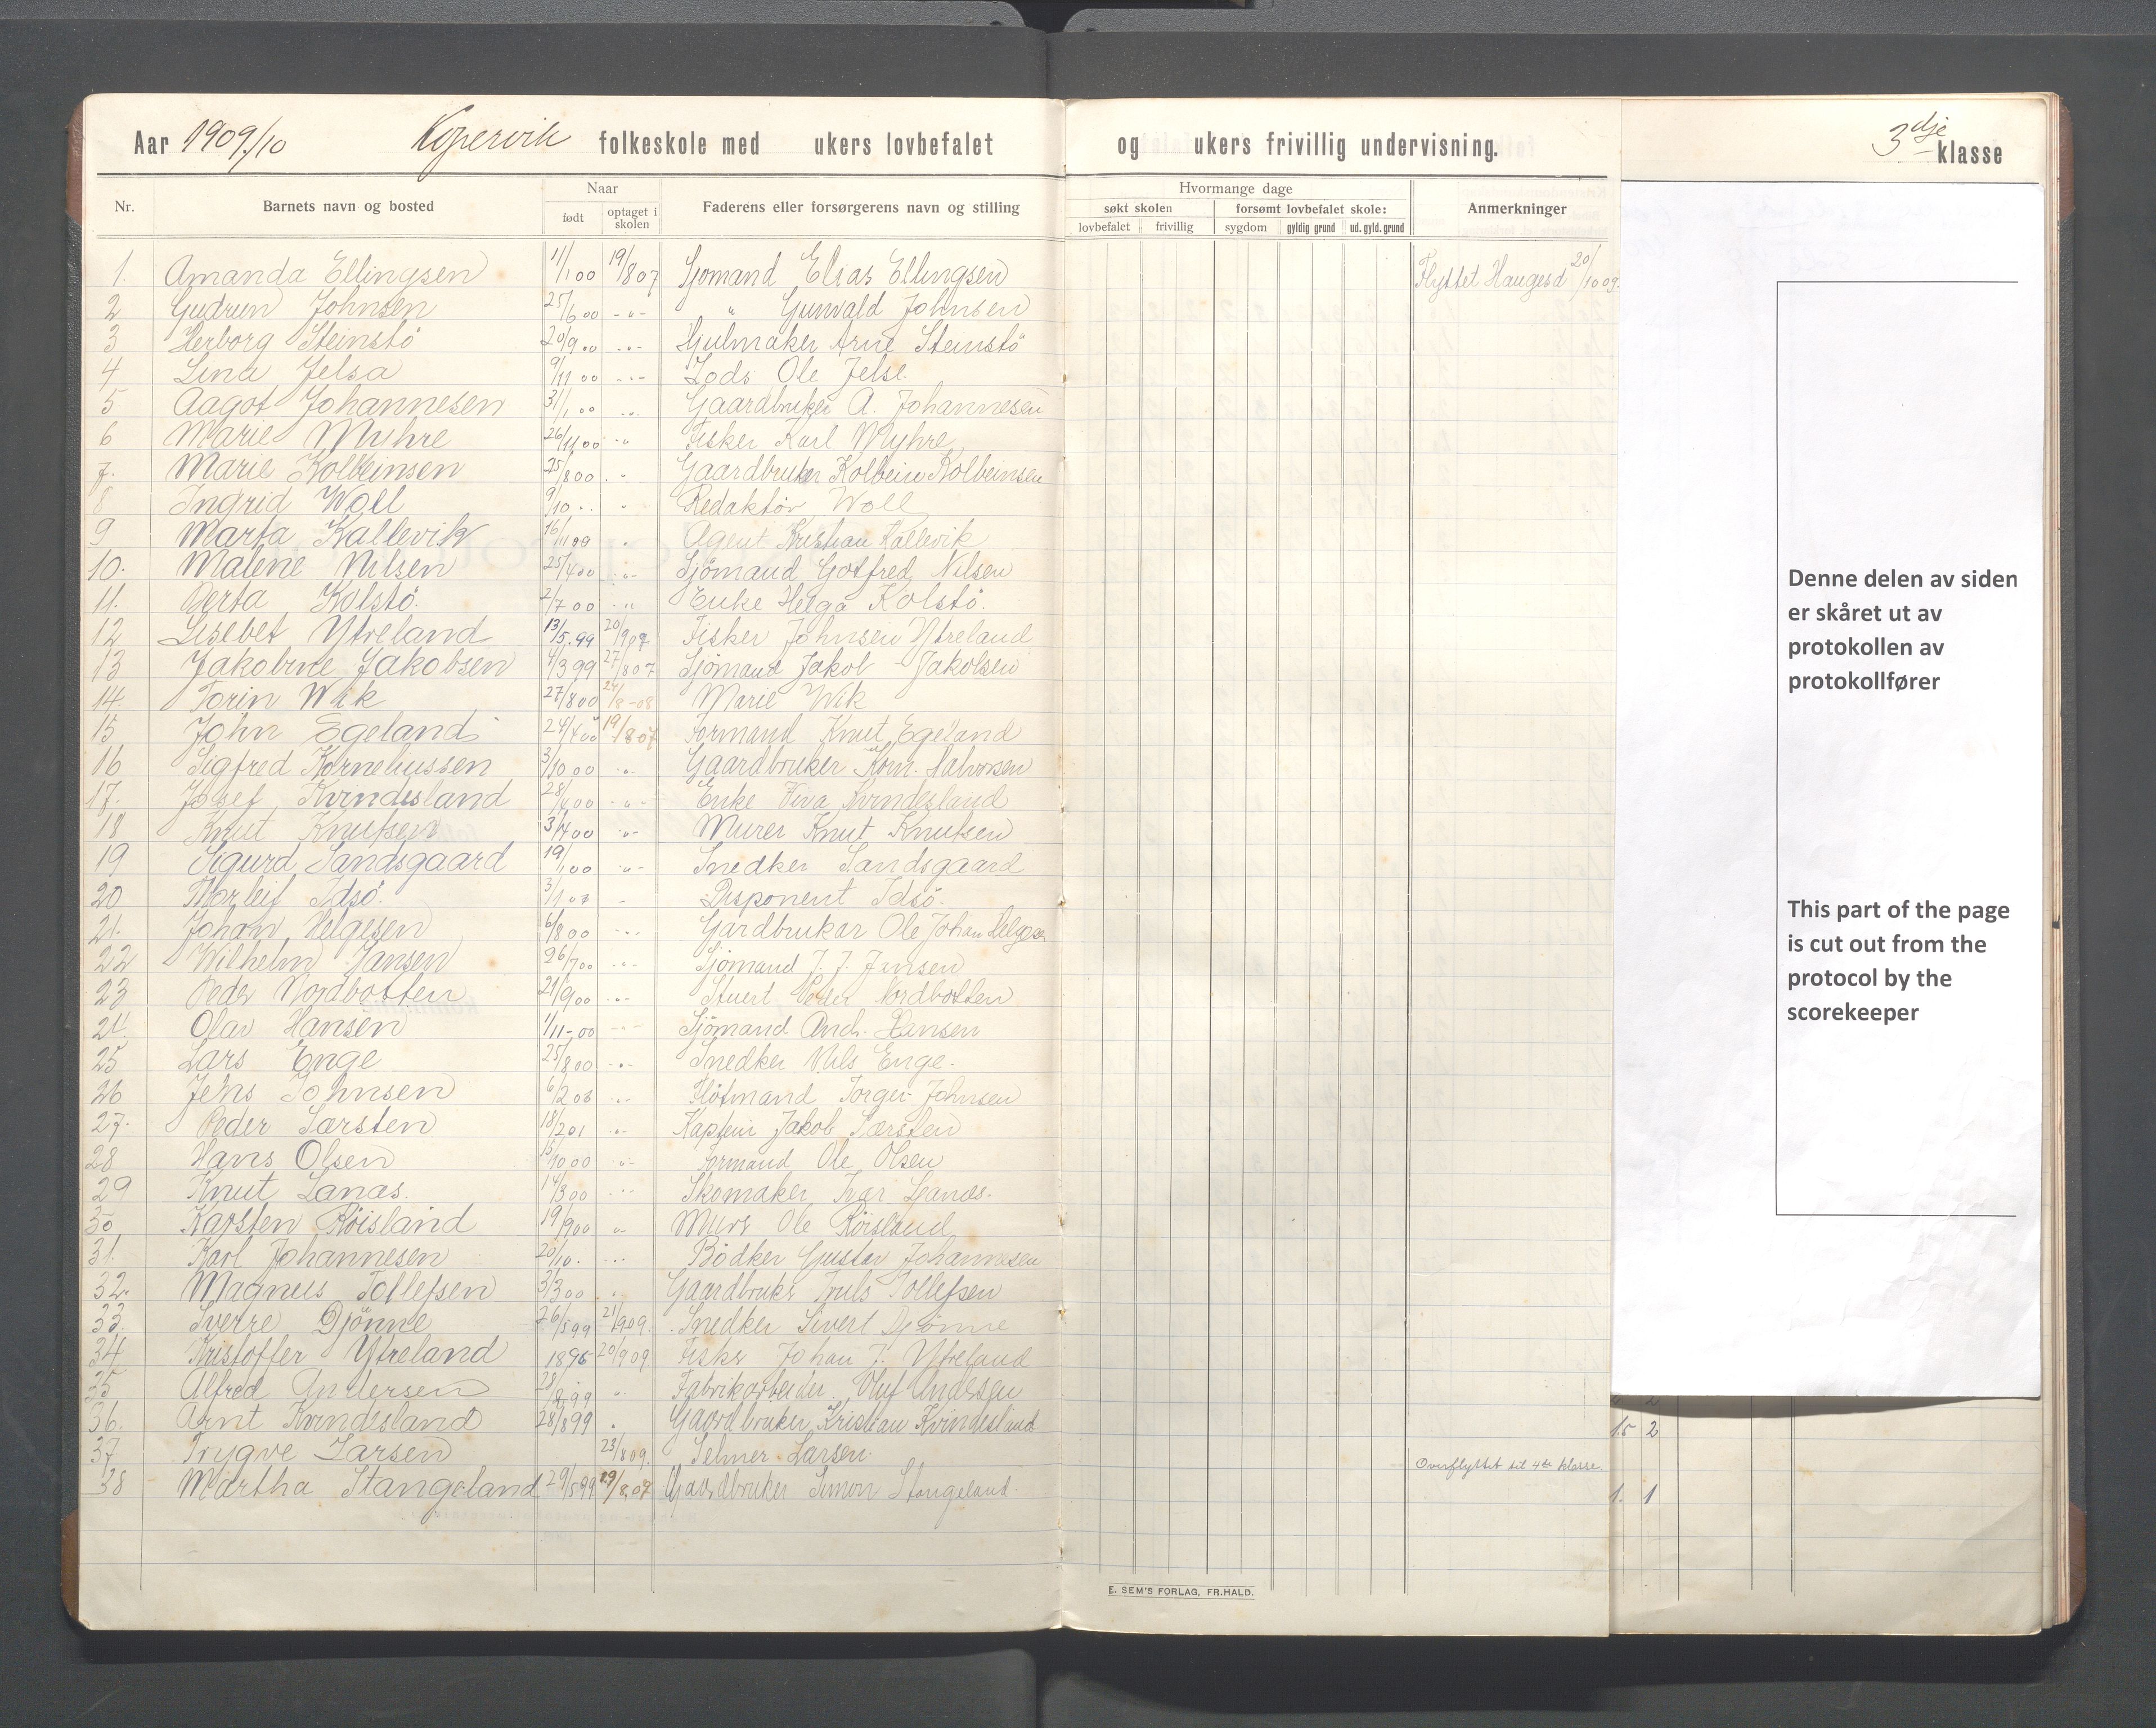 Aar 1909/10 Kopervik folkeskole med ukers lovbefalet og ukers frivillig undervisning. 3dje klasse
Nr. Barnets navn og bosted Naar født optaget i skolen Faderens eller forsørgerens navn og stilling Hvormange dage søkt skolen lovbefalet frivillig forsømt lovbefalet skole: sygdom gyldig grund ud. gyld. grund Anmerkninger
1. Amanda Ellingsen 11/1 00 19/8 07 Sjomand Elias Ellingsen Flyttet Haugesd 20/10 09.
2 Gudrun Johnsen 25/6 00 -"- " Gunvald Johnsen
3 Herborg Steinstö 20/9 00 -"- Hjulmaker Arne Steinstö
4 Lina Jelsa 9/11 00 -"- Lods Ole Jelse
5 Aagot Johannesen 31/1 00 " Gaardbruker A. Johannesen
6 Marie Myhre 26/11 00 -" Fisker Karl Myhre
7. Marie Kolbeinsen 25/8 00 " Gaardbruker Kolbein Kolbeinsen
8 Ingrid Woll 9/10 " Redaktør Woll
9 Marta Kallevik 16/11 99 " Agent Kristian Kallevik
10. Malene Nilsen 25/4 00 -"- Sjömand Gotfred Nilsen
11. Berta Kolstö. 2/7 00 " Enke Helga Kolstö.
12 Lisebet Ytreland 13/5.99 20/9 07 Fisker Johnsen Ytreland
13 Jakobine Jakobsen 4/3 99 27/8 07 Sjömand Jakob Jakobsen
14. Torin Wik 27/8 00 24/8-08 Marie Wik
15 John Egeland 24/4 00 19/8 07 Formand Knut Egeland
16 Sigfred Korneliussen 3/10 00 -"- Gaardbruker Korn. Halvorsen
17. Josef Kvindesland 28/4 00 -"- Enke Kvindesland
18 Knut Knutsen 3/4 00 -"- Murer Knut Knutsen
19 Sigurd Sandsgaard 19/1 00 -"- Snedker Sandsgaard
20 Thorleif Idsö. 3/1 - Disponent Idsö.
21. Johan Helgesen 6/8 00 -"- Gardbruker Ole Johan Helgesen
22 Wilhelm Jansen 26/7 00 -"- Sjömand J. J. Jansen
23 Peder Nordbotten 21/9 00 -"- Stuert Peder Nordbotten
24 Olav Hansen 1/11-00 -"- Sjömand And. Hansen
25 Lars Enge 25/8 00 -"- Snedker Nils Enge.
26 Jens Johnsen 6/2 00 -"- Flötmand Torger Johnsen
27. Peder Sørsten 18/2 01 -"- Kaptein Jakob Sørsten
28 Hans Olsen 15/10 00 -"- Formand Ole Olsen
29 Knut Lanæs. 14/3 00 -"- Skomaker Ivar Lanæs.
30 Karsten Röisland 19/9 00 " Murer Ole Röisland
31. Karl Johannesen 20/10. -"- Bödker Gustav Johannesen
32. Magnus Tollefsen 3/3 00 " Gaardbruker Truls Tollefsen
33. Sverre Djönne 26/5 99 21/9 09. Snedker Sivert Djönne
34 Kristoffer Ytreland 1896 20/9 09 Fisker Johan J. Ytreland
35 Alfred Andersen 28/8 99 " Fabrikarbeider Oluf Andersen
36. Arnt Kvindesland 28/8 99 " Gaardbruker Kristian Kvindesland 15 2
37 Trygve Larsen 23/8 09. Selmer Larsen Overflyttet til 4de klasse
38 Martha Stangeland 29/5 99 19/8.07 Gaardbruker Simon Stangeland. 1. 1
E. SEM'S FORLAG, FR.HALD.
Denne delen av siden
er skåret ut av
protokollen av
protokollfører
This part of the page
is cut out from the
protocol by the
scorekeeper